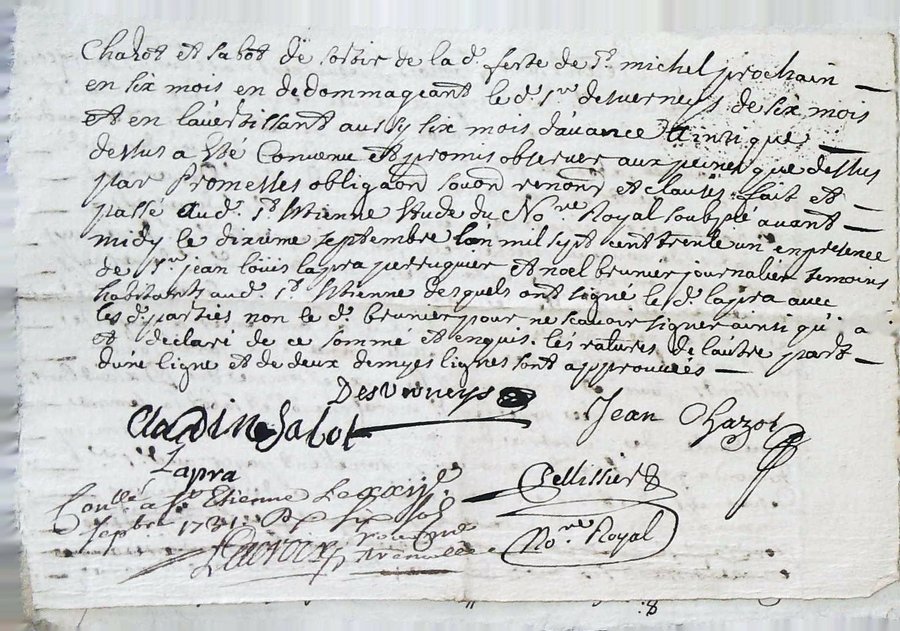 Chazot et Sabot de sortir de la d. feste de St. michel prochain
en six mois en dedommageant le d. Sr. desverneys de six mois
et en lavertissant aussy six mois davance ainsi que
dessus a esté Convenu et promis observer aux peines que dessus
par Promesses obligaons renons et clauses. fait et
passé aud. St. Etienne Etude du Nore. Royal soubsné avant
midy le dixieme septembre lan mil sept cent trente un en presence
de Sr. jean louis lapra perruquier et noel brunier journalier temoins
habitants aud. St. Etienne desquels ont signé le d. lapra avec
les d. parties non le d. brunier pour ne scavoir signer ainsi qu'il a
et declaré de ce sommé et enquis. les ratures de lautre part
dune ligne et de deux demyes lignes sont approuvées
Desverneys
claudin Sabot
Jean Chazot
Lapra
Pellissier
Nore. Royal
Conllé a St. Etienne Le xxije.
Septbre 1731. Six
Lacroix